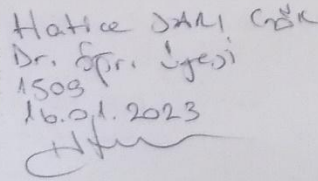 Hatice SARI GÖK
Dr. Öğr. Üyesi
1509
16.01.2023